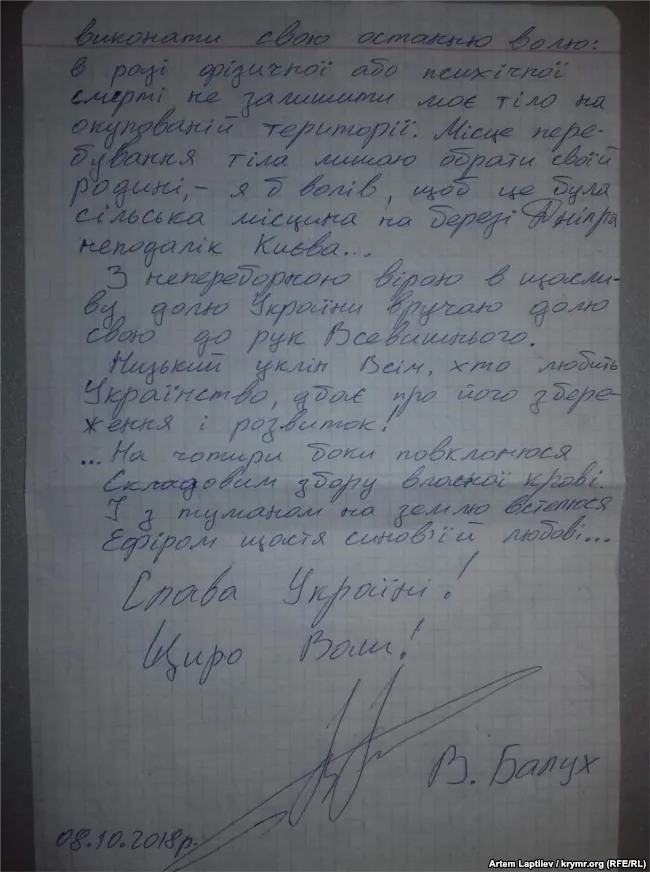 виконати свою останню волю:
в разі фізичної або психічної
смерті не залишити моє тіло на
окупованій території. Місце пере-
бування тіла лишаю обрати своїй
родині,- я б волів, щоб це була
сільська місцина на березі Дніпра
неподалік Києва...
З непереборною вірою в щасли-
ву долю України вручаю долю
свою до рук Всевишнього.
Низький уклін Всім, хто любить
Українство, дбає про його збере-
ження і розвиток!
...На чотири боки повклонюся
Складовим збору власної крові.
І з туманом на землю встелюся
Ефіром щастя синовій любові...
Слава Україні!
Щиро Ваш!
В. Балух
08.10.2018р.
Artem Laptiiev / krymr.org (RFE/RL)